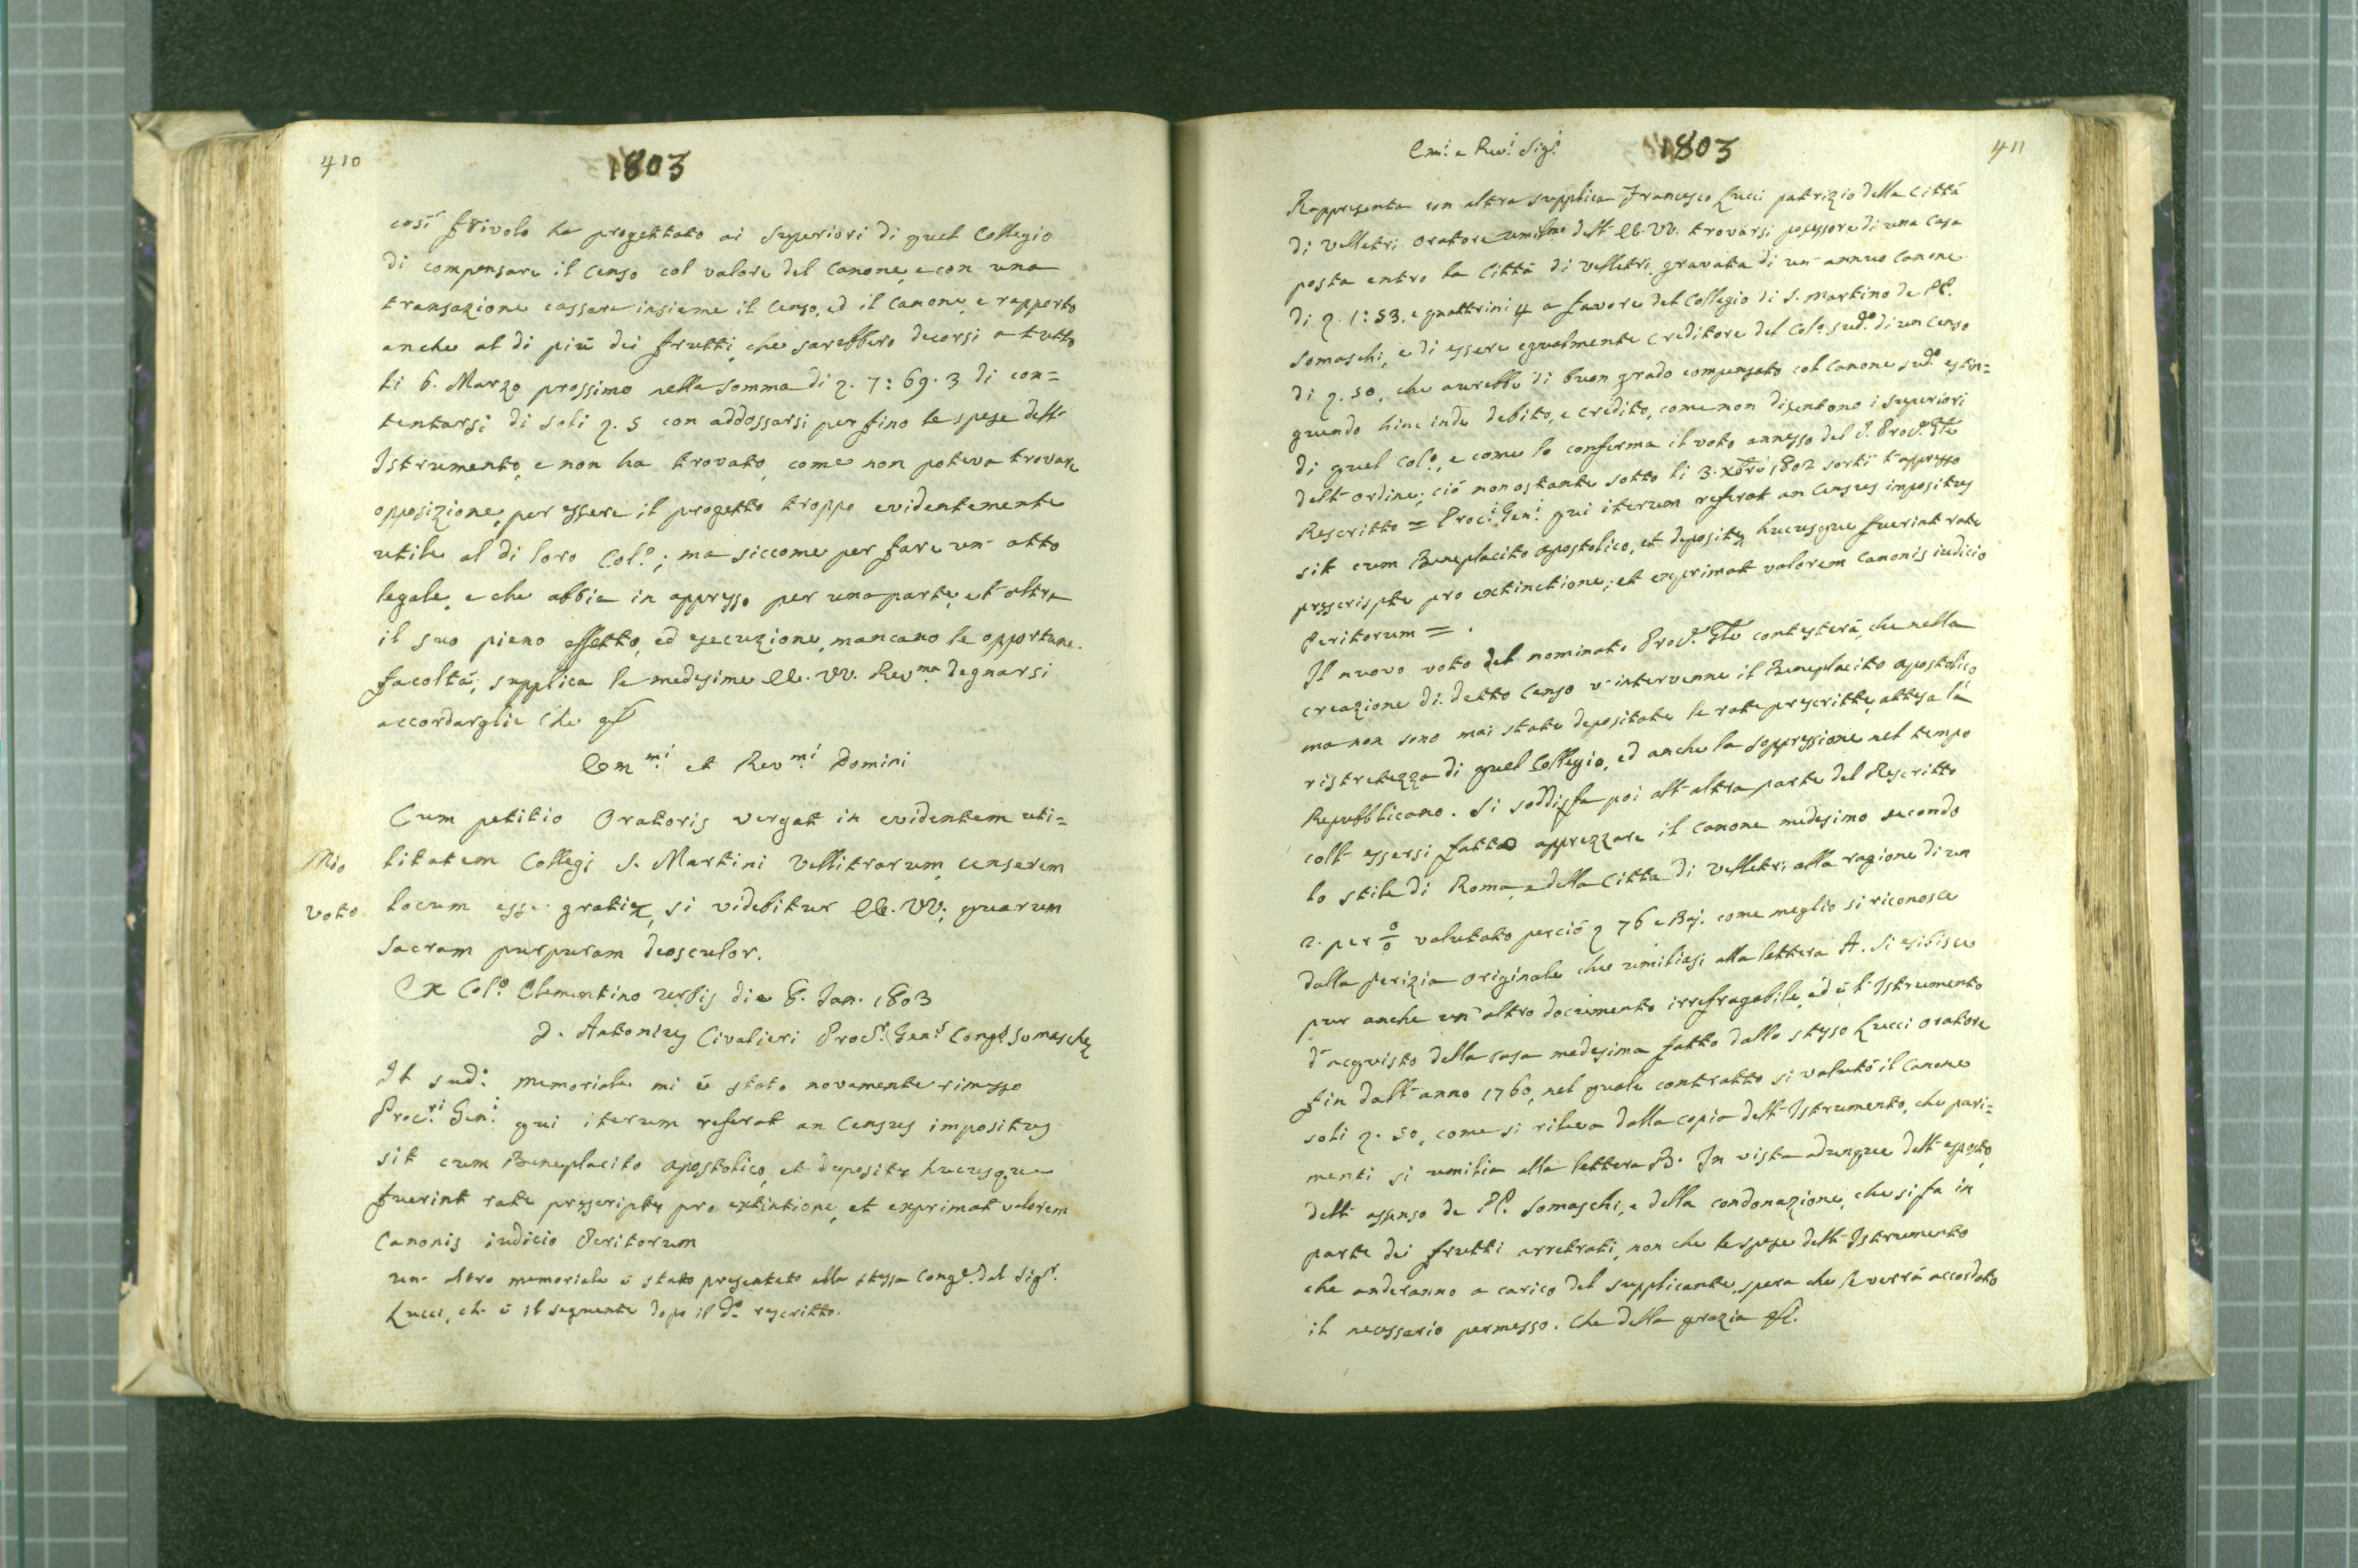 410
1803
così frivolo ha progettato ai Superiori di quel Collegio
di compensare il Censo col valore del Canone, e con una
transazione cassare insieme il Censo, ed il Canone, e rapporto
anche al di più dei frutti, che sarebbero decorsi a tutto
li 6. Marzo prossimo nella somma di 7:69.3 di con=
tentarsi di soli 5 con addossarsi per fino le spese dell'
Istrumento, e non ha trovato, come non poteva trovare
opposizione, per essere il progetto troppo evidentemente
utile al di loro Col.o; ma siccome per fare un' atto
legale, e che abbia in appresso per una parte, e l'altra
il suo pieno effetto, ed esecuzione, mancano le opportune
facoltà; supplica le medesime EE. VV. Rev.ma degnarsi
accordarglie Che
Em.mi et Rev.mi Domini
Cum petitio Oratoris vergat in evidentem uti=
Mio litatem Collegi S. Martini Vellitrarum, censerem
Voto locum esse gratiæ, si videbitur EE. VV. quarum
Sacram purpuram deosculor.
Ex Col.o Clementino Urbis die 8. Jan. 1803
D. Antonius Civalieri Proc.r Gen.s Cong.s Somaschæ
Il sud.o memoriale mi è stato novamente rimesso
Proc.ri Gen.i qui iterum referat an Census impositus
sit cum Beneplacito Apostolico, et depositæ hucusque
fuerint rate prescriptæ pro extintione, et exprimat valorem
Canonis iudicio Peritorum
Un' altro memoriale è stato presentato alla stessa Cong.e dal Sig.r
Lucci, ch' è il seguente dopo il d.o rescritto.
Em.i e Rev.i Sig.i
1803
411
Rappresenta con altra supplica Francesco Lucci patrizio della Città
di Velletri Oratore umil.mo dell' EE. VV. trovarsi possessore di una Casa
posta entro la Città di Velletri gravata di un' annuo Canone
di 1:53. e quattrini 4 a favore del Collegio di S. Martino de PP.
Somaschi, e di essere egualmente Creditore del Col.o sud.o di un Censo
di 50, che avrebbe di buon grado compensato col Canone sud.o estin=
guendo hinc inde debito, e credito, come non disentono i Superiori
di quel Col.o, e come lo conferma il voto annesso del P. Proc.r Gle
dell' ordine; ciò nonostante sotto li 3. Xbre 1802 sortì l'appresso
Rescritto = Proc.i Gen.i qui iterum referat an Census impositus
sit cum Beneplacito Apostolico, et depositæ hucusque fuerint rate
prescriptæ pro extinctione; et exprimat valorem Canonis iudicio
Peritorum = .
Il nuovo voto del nominato Proc.r Gle contesterà, che nella
creazione di detto Censo v' intervenne il Beneplacito apostolico
ma non sono mai state depositate le rate prescritte, attesa la
ristretezza di quel Collegio, ed anche la soppressione nel tempo
Repubblicano. Si soddisfa poi all' altra parte del Rescritto
coll' essersi fatto apprezzare il Canone medesimo secondo
lo stile di Roma, e della Città di Velletri alla ragione di un
2. per 0/0 valutato perciò 76 e Baj. come meglio si riconosce
dalla perizia originale che umiliasi alla lettera A. Si esibisce
pur anche un' altro documento irrefragabile, ed è l'Istrumento
d' acquisto della casa medesima fatto dallo stesso Lucci Oratore
fin dall' anno 1760, nel quale contratto si valutò il Canone
soli 50, come si rileva dalla copia dell' Istrumento, che pari=
menti si umilia alla lettera B. In vista adunque dell' esposto,
dell' assenso de PP. Somaschi, e della condonazione, che si fa in
parte dei frutti arretrati, non che le spese dell' Istrumento
che anderanno a carico del supplicante, spera che le verrà accordato
il necessario permesso. Che della grazia